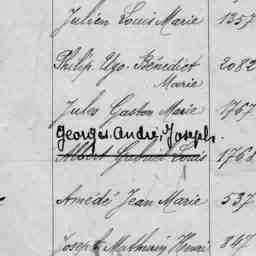 Julien Louis Marie 1357
Philip. Ugo. Bénédict 2082
Marie
Jules Gaston Marie 1767
Georges. André, Joseph.
Albert Gabriel Louis 1768
Amédé Jean Marie 537
Joseph Mathurin Henri 847